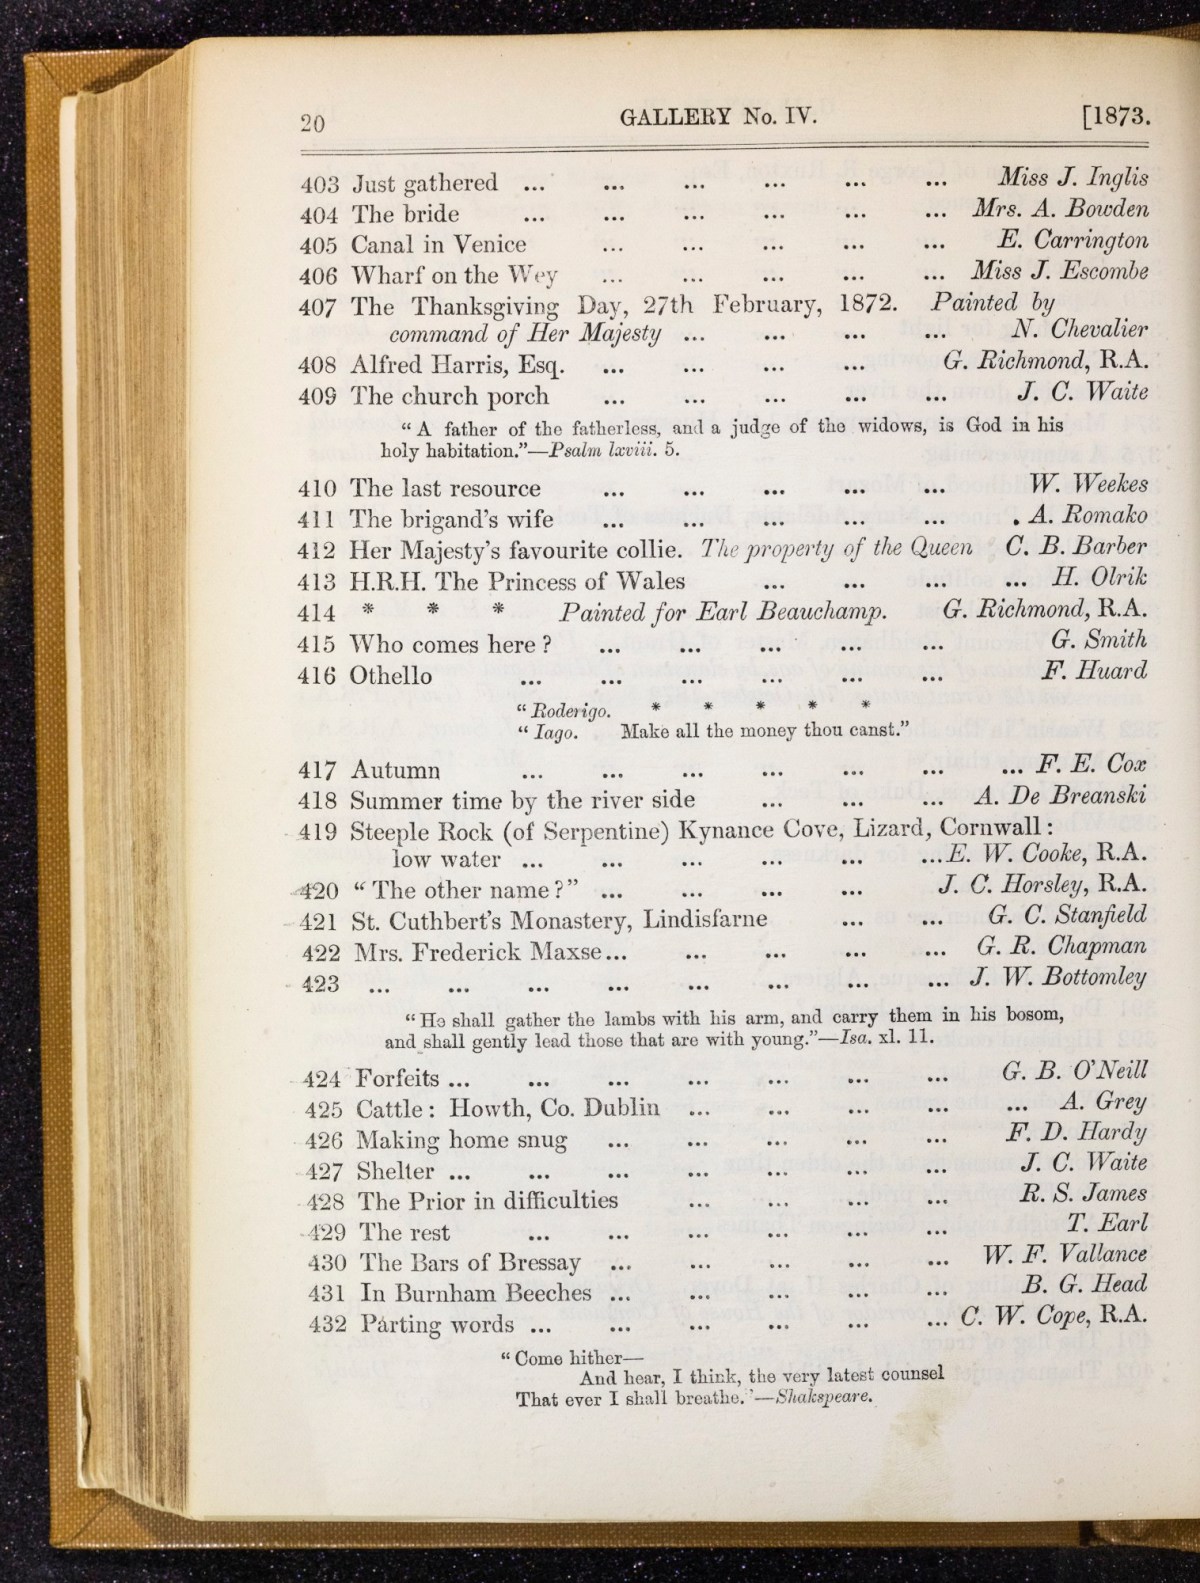 20 GALLERY No. IV. [1873.
403 Just gathered ... ... ... ... ... ... Miss J. Inglis
404 The bride ... ... ... ... ... ... Mrs. A. Bowden
405 Canal in Venice ... ... ... ... ... E. Carrington
406 Wharf on the Wey ... ... ... ... ... Miss J. Escombe
407 The Thanksgiving Day, 27th February, 1872. Painted by
command of Her Majesty ... ... ... ... N. Chevalier
408 Alfred Harris, Esq. ... ... ... ... G. Richmond, R.A.
409 The church porch ... ... ... ... ... J. C. Waite
“ A father of the fatherless, and a judge of the widows, is God in his
holy habitation.”—Psalm lxviii. 5.
410 The last resource ... ... ... ... ... W. Weekes
411 The brigand’s wife ... ... ... ... ... . A. Romako
412 Her Majesty’s favourite collie. The property of the Queen C. B. Barber
413 H.R.H. The Princess of Wales ... ... ... ... H. Olrik
414 * * * Painted for Earl Beauchamp. G. Richmond, R.A.
415 Who comes here ? ... ... ... ... ... G. Smith
416 Othello ... ... ... ... ... ... F. Huard
“ Roderigo. * * * * *
“ Iago. Make all the money thou canst.”
417 Autumn ... ... ... ... ... ... ... F. E. Cox
418 Summer time by the river side ... ... ... A. De Breanski
419 Steeple Rock (of Serpentine) Kynance Cove, Lizard, Cornwall :
low water ... ... ... ... ... ...E. W. Cooke, R.A.
420 “ The other name ? ” ... ... ... ... J. C. Horsley, R.A.
421 St. Cuthbert’s Monastery, Lindisfarne ... ... G. C. Stanfield
422 Mrs. Frederick Maxse... ... ... ... ... G. R. Chapman
423 ... ... ... ... ... ... ... ... J. W. Bottomley
“ He shall gather the lambs with his arm, and carry them in his bosom,
and shall gently lead those that are with young.”—Isa. xl. 11.
424 Forfeits ... ... ... ... ... ... ... G. B. O’Neill
425 Cattle : Howth, Co. Dublin ... ... ... ... ... A. Grey
426 Making home snug ... ... ... ... ... F. D. Hardy
427 Shelter ... ... ... ... ... ... ... J. C. Waite
428 The Prior in difficulties ... ... ... ... R. S. James
429 The rest ... ... ... ... ... ... T. Earl
430 The Bars of Bressay ... ... ... ... ... W. F. Vallance
431 In Burnham Beeches ... ... ... ... ... B. G. Head
432 Parting words ... ... ... ... ... ... C. W. Cope, R.A.
“ Come hither—
And hear, I think, the very latest counsel
That ever I shall breathe.”—Shakspeare.